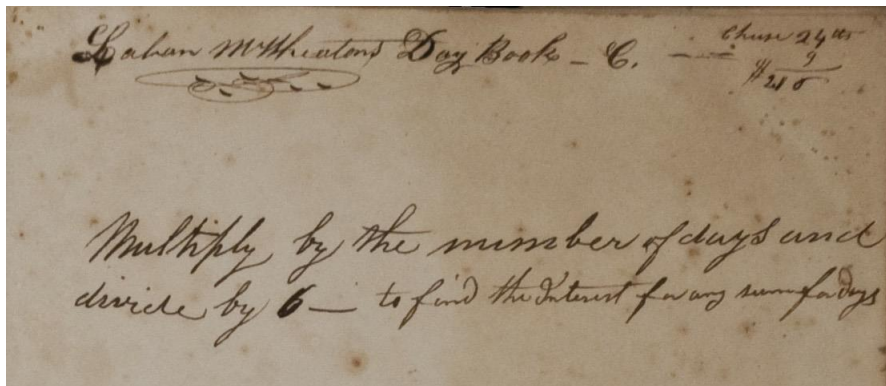 Laban M Wheatons Day Book - C.
24
9
$ 216
Multiply by the number of days and
divide by 6 — to find the Interest for any sum for days